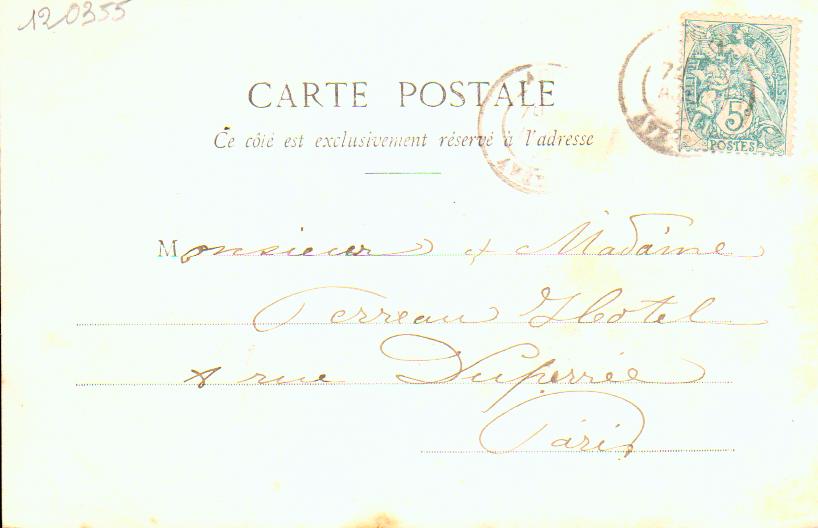 120355
CARTE POSTALE
Ce côté est exclusivement réservé à l'adresse
5
POSTES
Monsieur & Madame
Perreau Hotel
rue Duperrée
Paris